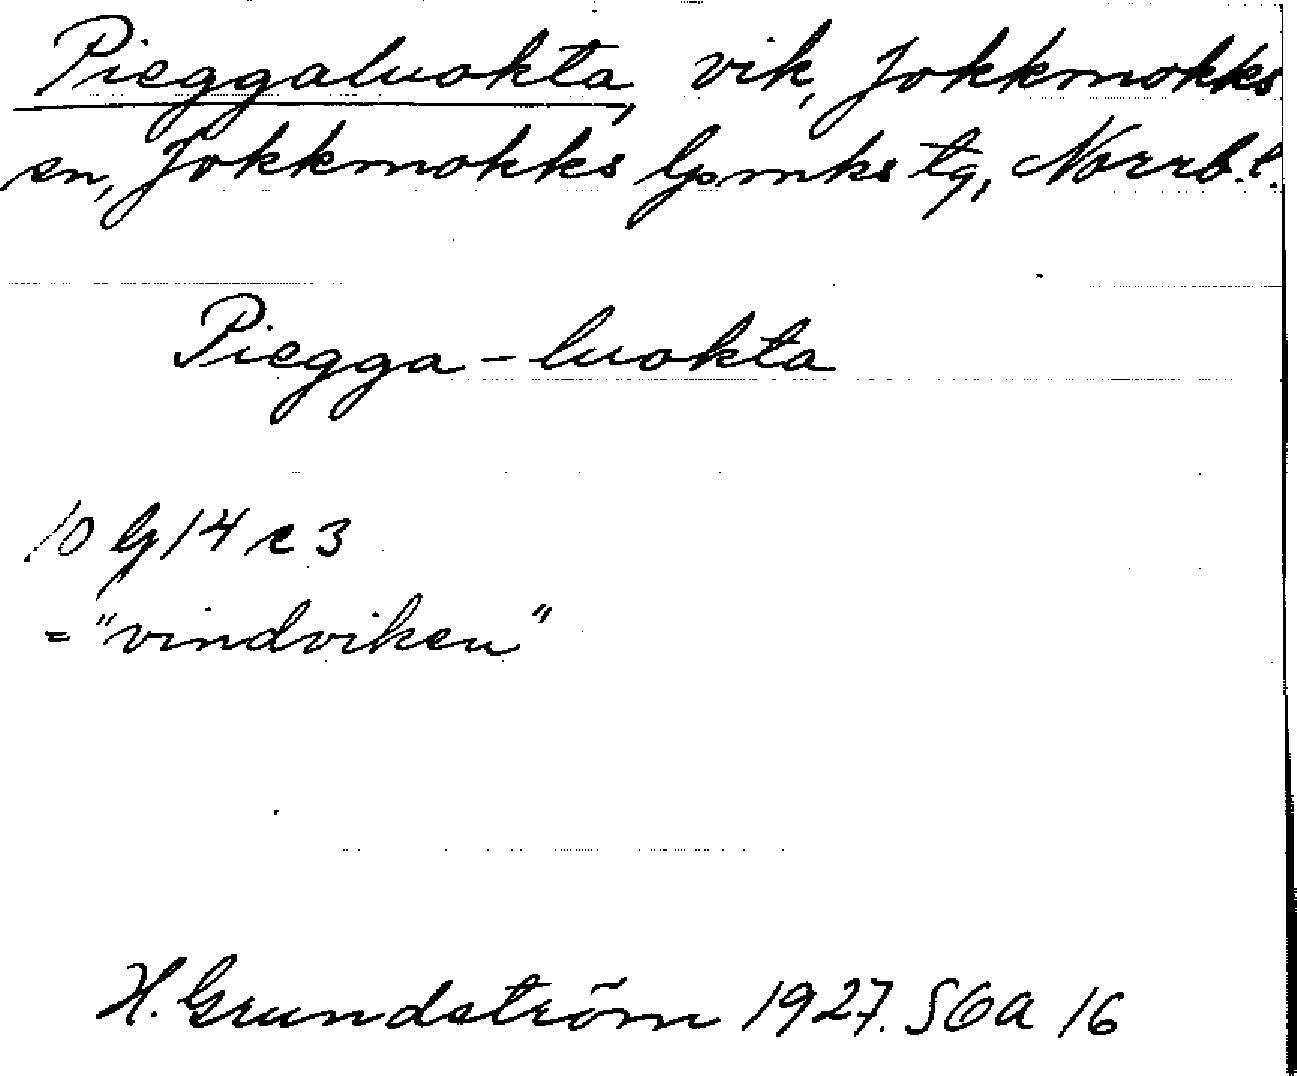 Pieggaluokta, vik, Jokkmokks
sn, Jokkmokks lpmks tg, Norrb. l.
Piegga-luokta
10 lg 14 c 3
= "vindviken"
H. Grundström 1927. SOA 16